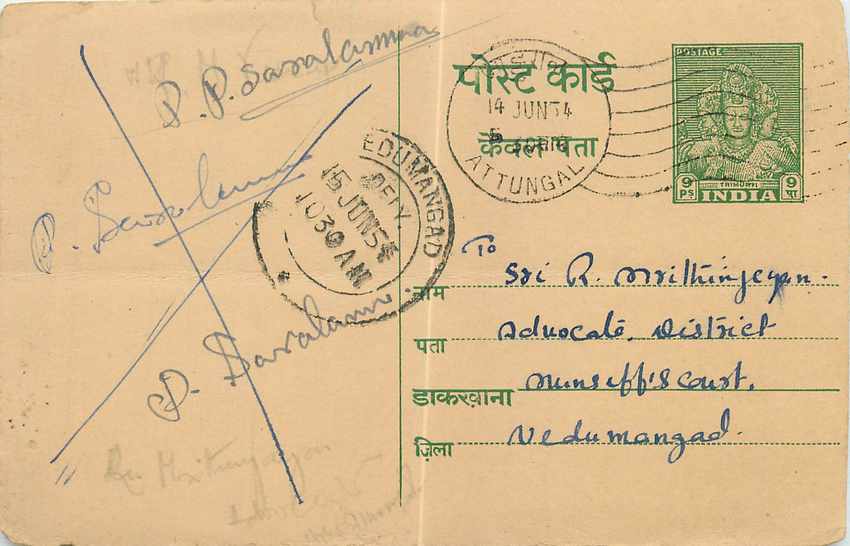 P. P. Saralamma
P. Saralamma
P. Saralamma
पोस्ट कार्ड
केवल पता
14 JUN 54
ATTUNGAL
POSTAGE
TRIMURTI
9 PS INDIA 9 पा
EDUMANGAD
DELY.
15 JUN 54
1030 AM
To
नाम Sri R. Mrithinjeyan.
पता Advocate, District
डाकख़ाना Munsiff's Court,
ज़िला Nedumangad.